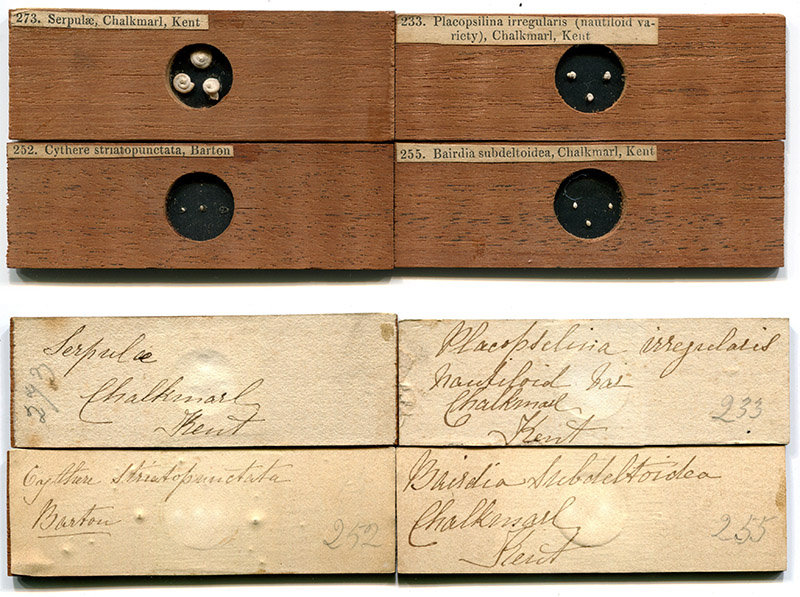 273. Serpulæ, Chalkmarl, Kent
233. Placopsilina irregularis (nautiloid va-
riety), Chalkmarl, Kent
252. Cythere striatopunctata, Barton
255. Bairdia subdeltoidea, Chalkmarl, Kent
Serpulæ
Chalkmarl
Kent
273
Placopselina irregularis
Nautiloid Var
Chalkmarl
Kent
233
Cythere striatopunctata
Barton
252
Bairdia Subdeltoidea
Chalkmarl
Kent
255